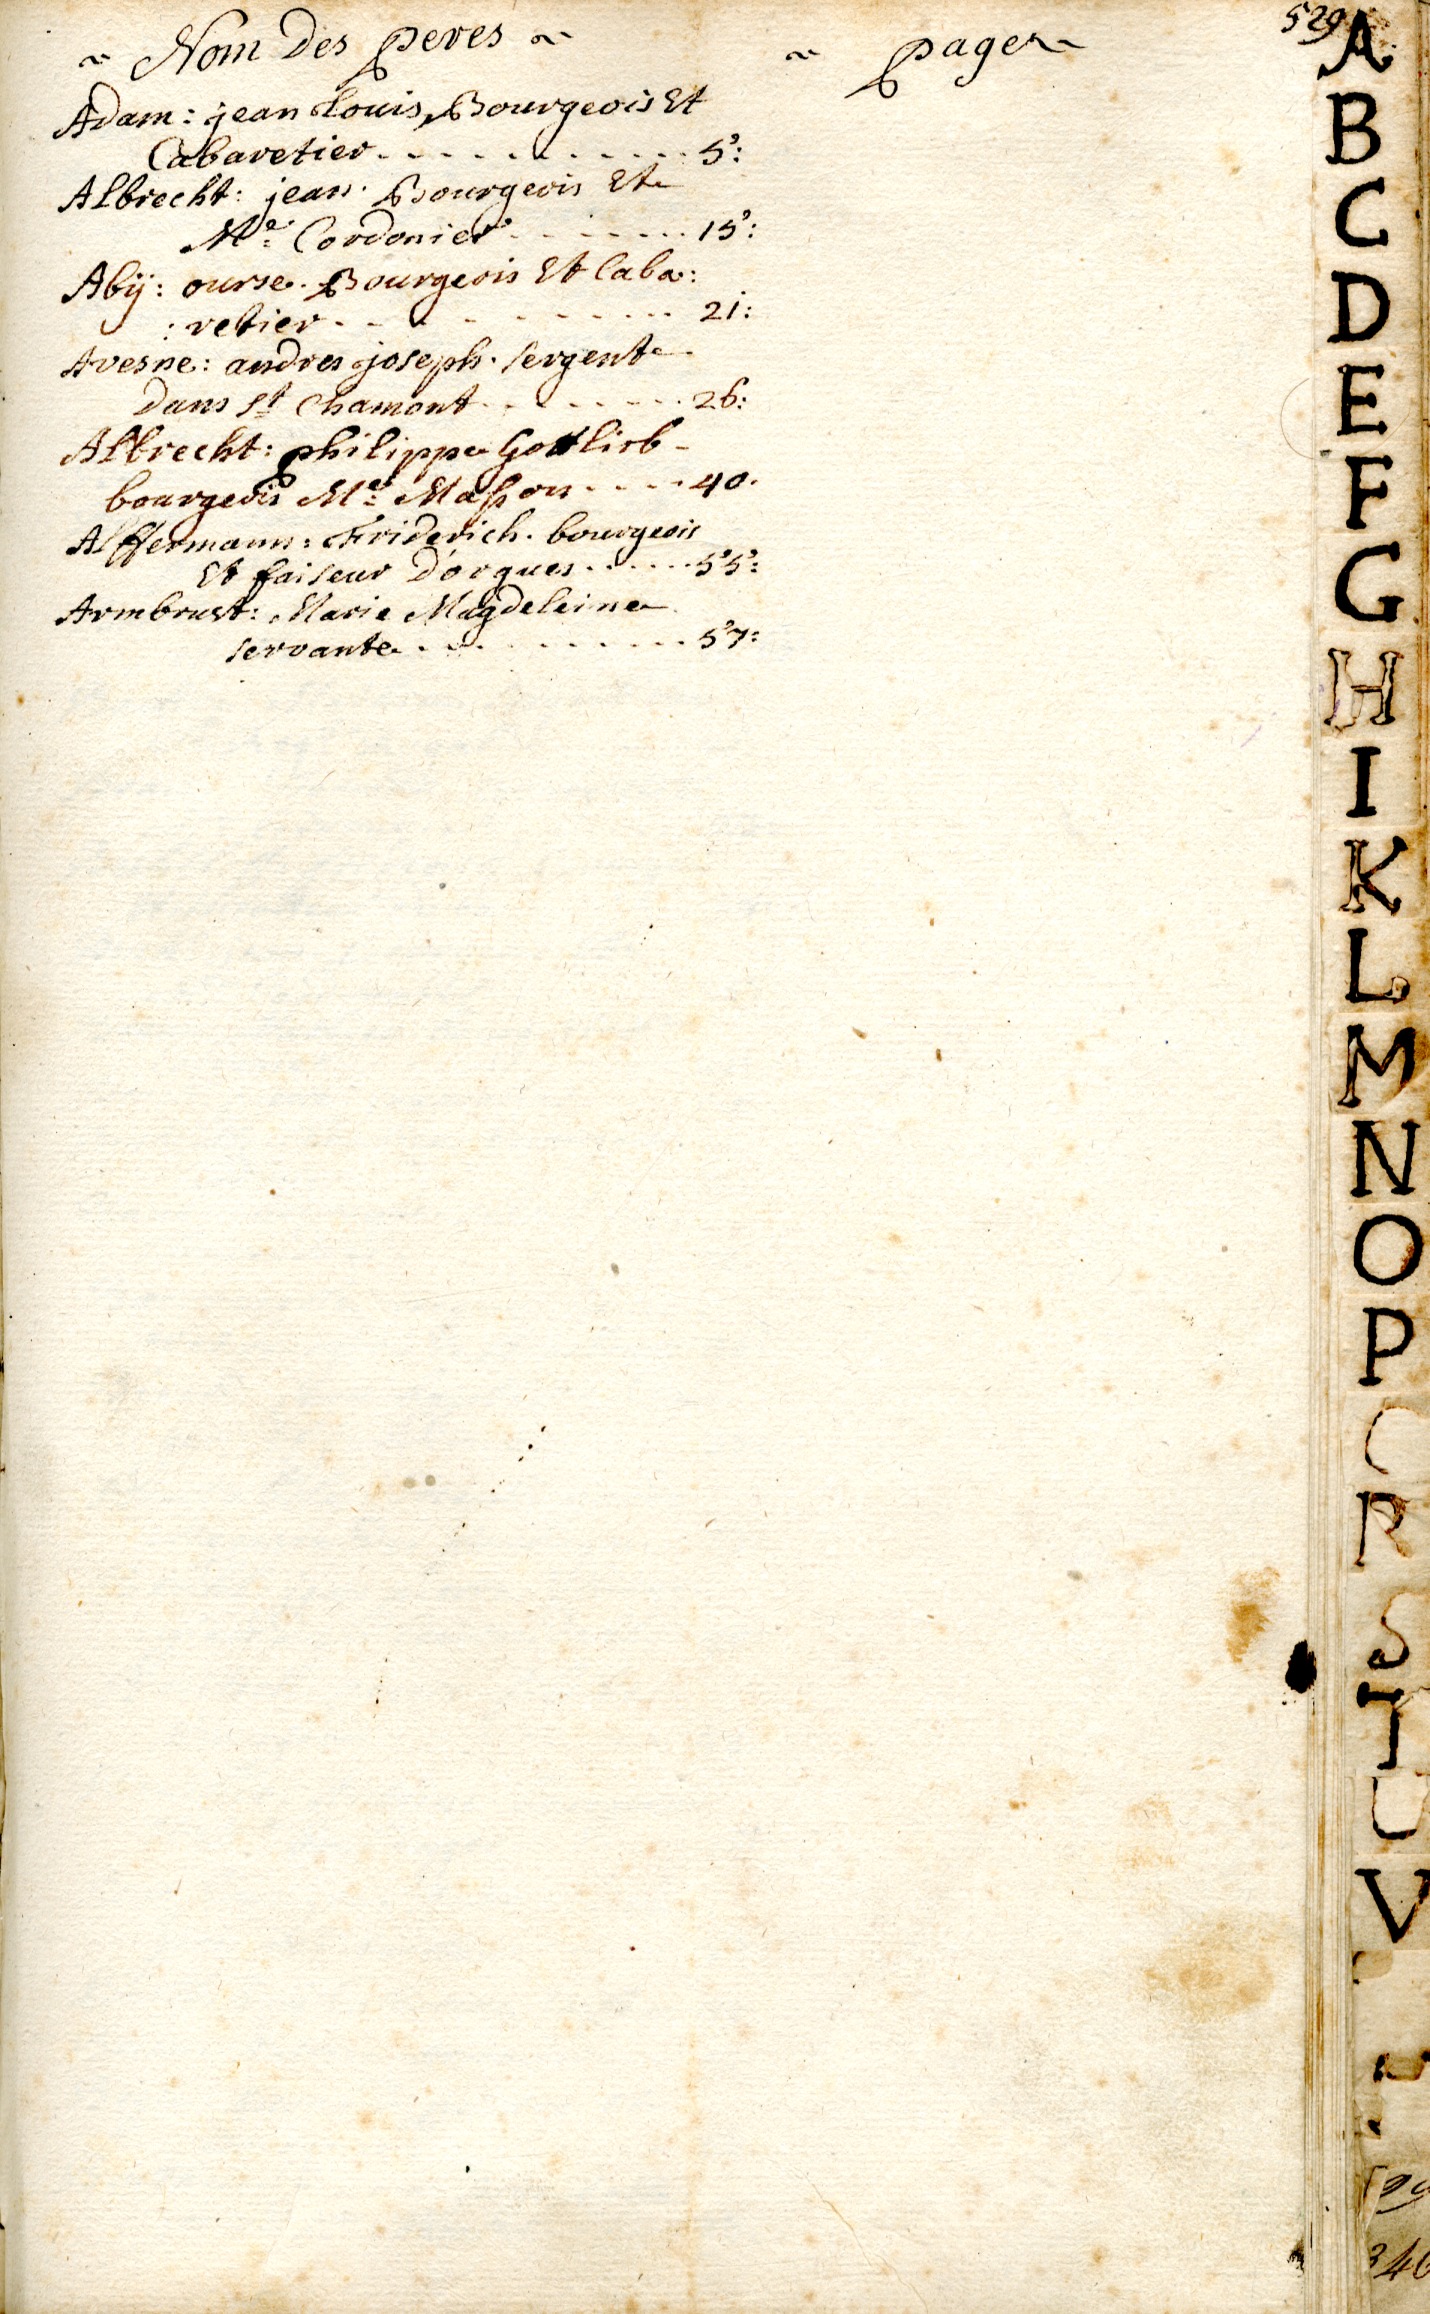 529
~ Nom Des peres ~
~ pages ~
Adam: jean Louis, Bourgeois Et
Cabaretier. - - - - - - - - - - 5:
Albrecht: jean. Bourgeois Et
Me: Cordonier - - - - - - 15:
Abÿ: ourse. Bourgeois Et Caba:
: retier - - - - - - - - - - 21:
Avesne: andres joseph. sergent
dans st Chamont - - - - - - - 26:
Albrecht: philippe Gottlieb -
bourgeois Me: Masson - - - - 40.
Alffermann: Friderich. bourgeois
Et faiseur D'orgues - - - - - 55:
Armbrust: Marie Magdeleine
servante - - - - - - - - - - 57:
A
B
C
D
E
F
G
H
I
K
L
M
N
O
P
R
S
T
U
V